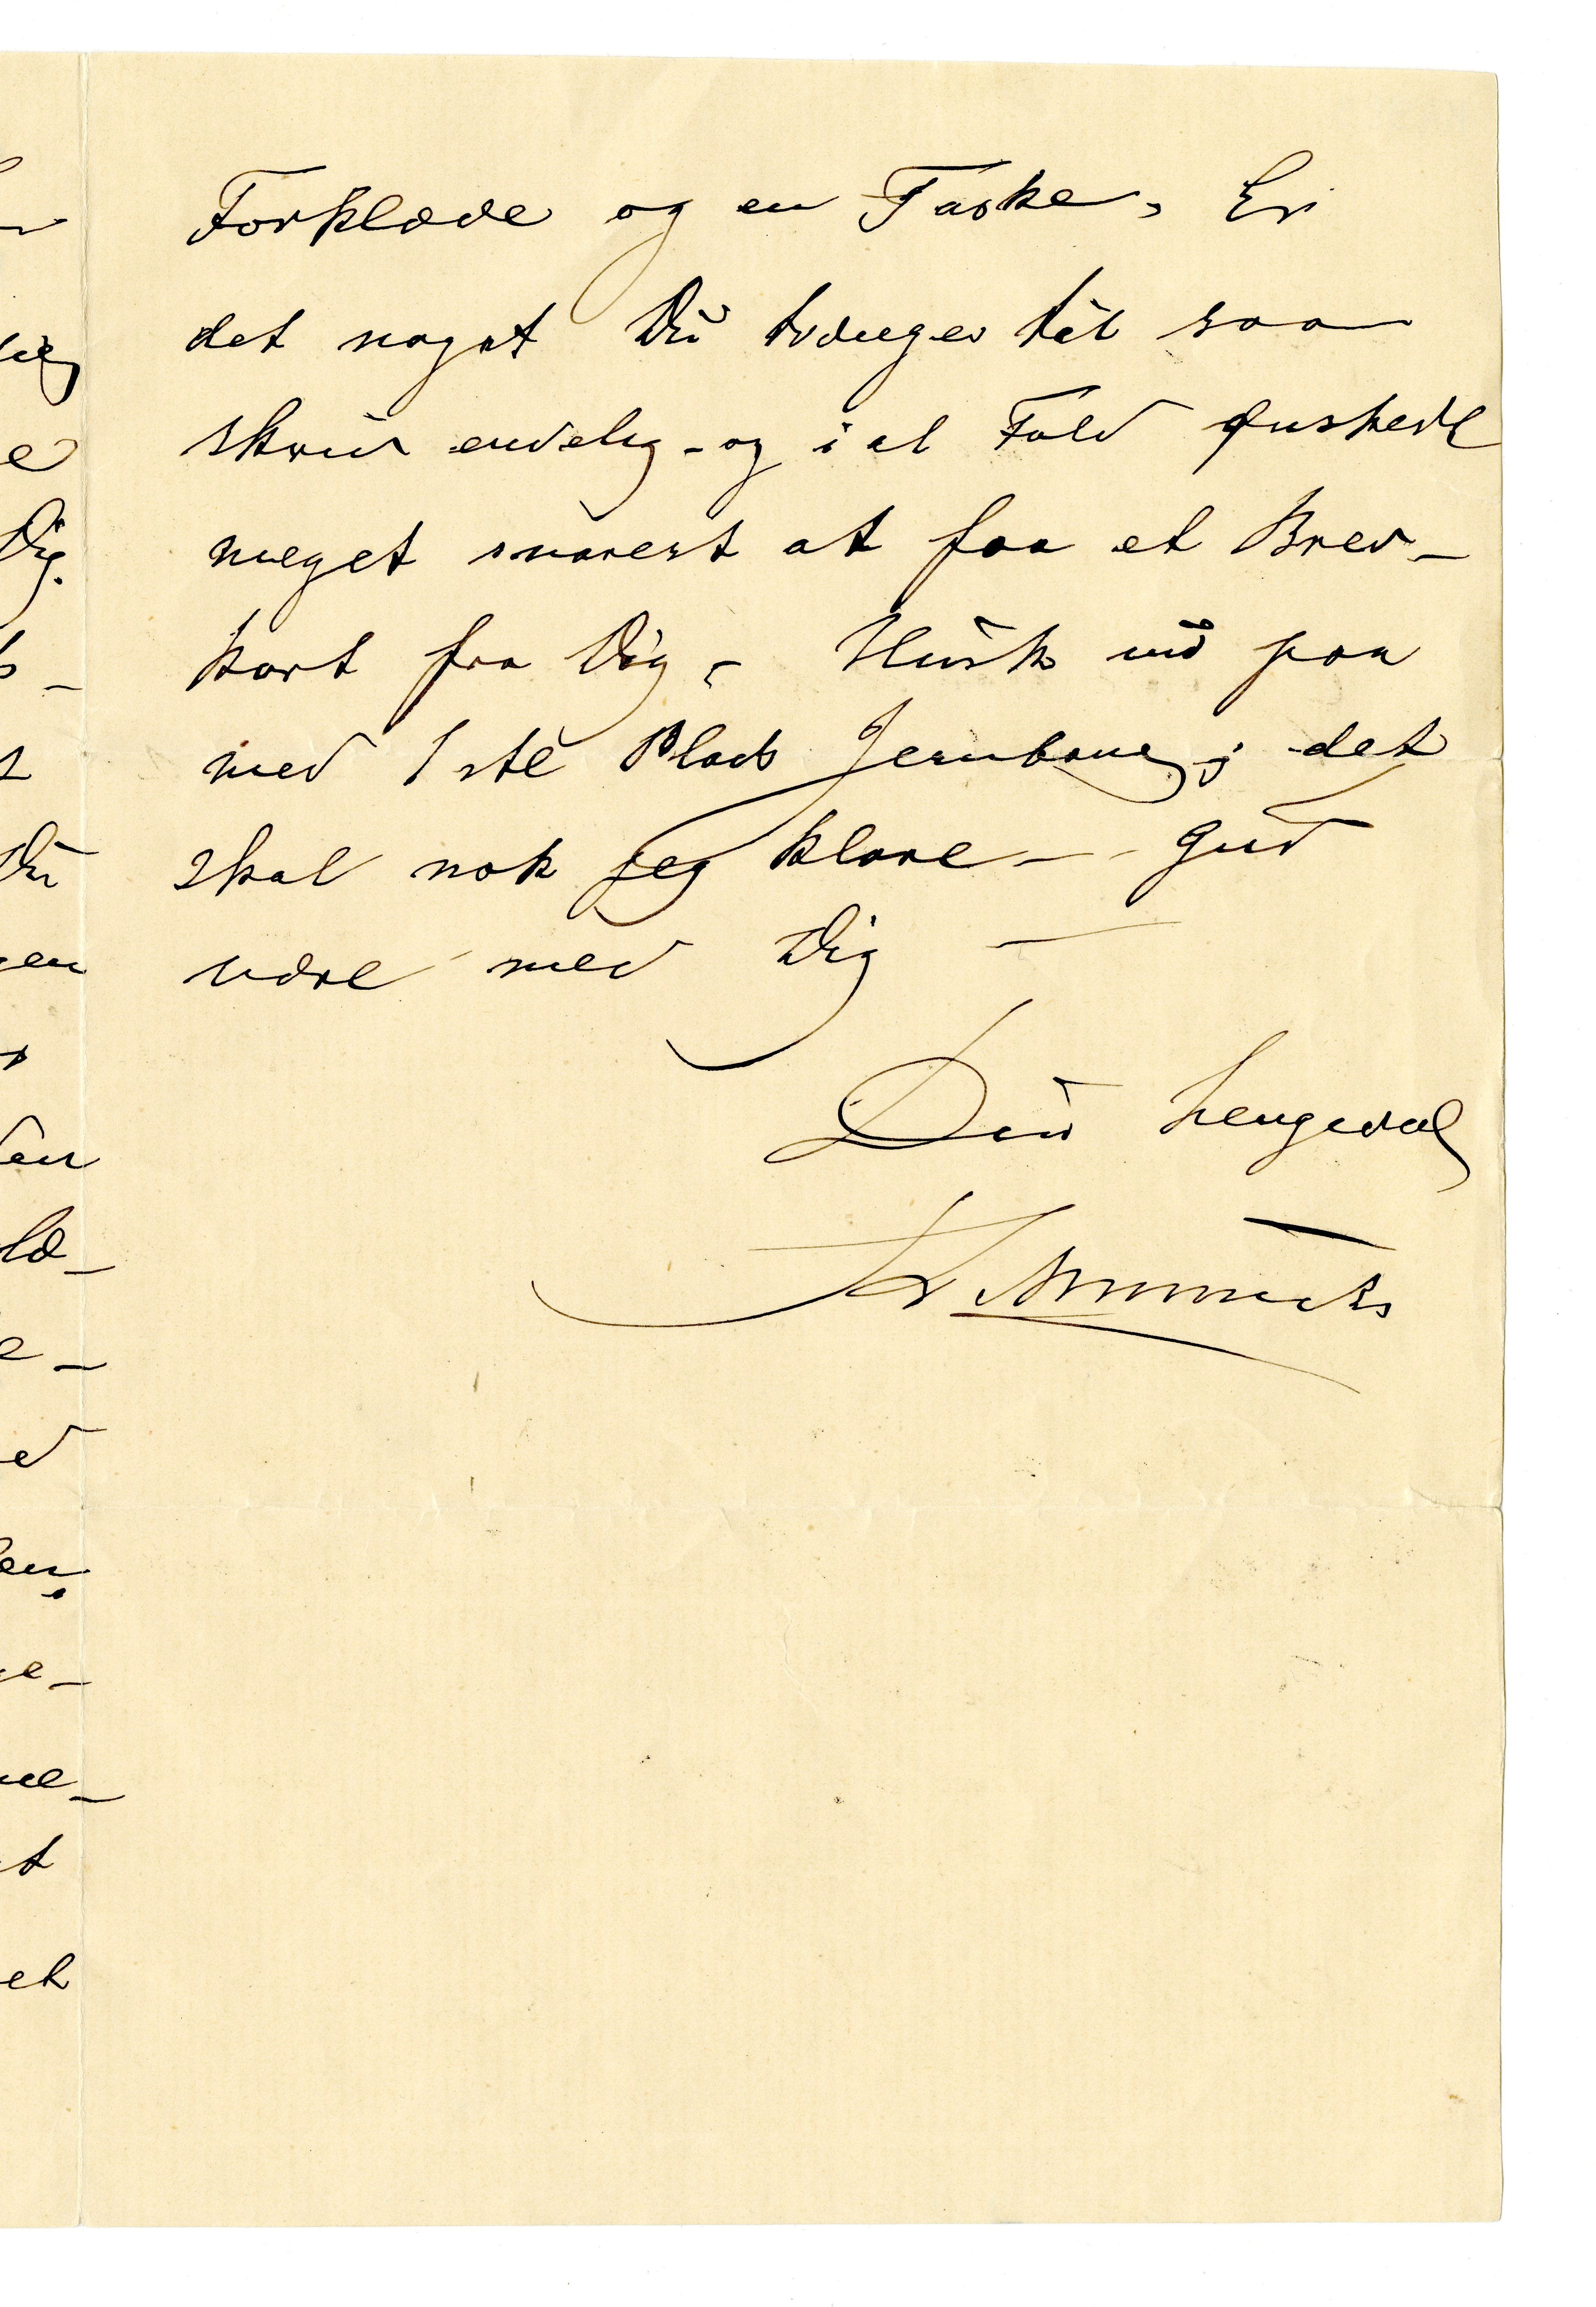 Forklæde og en Taske, Er
det noget Du trænger til saa
skriv endelig - og i al Fald ønskede
meget snarest at faa et Brev-
kort fra Dig, - Husk nu paa
med 1ste Plads Jernbane; det
skal nok jeg klare - - Gud
være med Dig -
Din hengivne